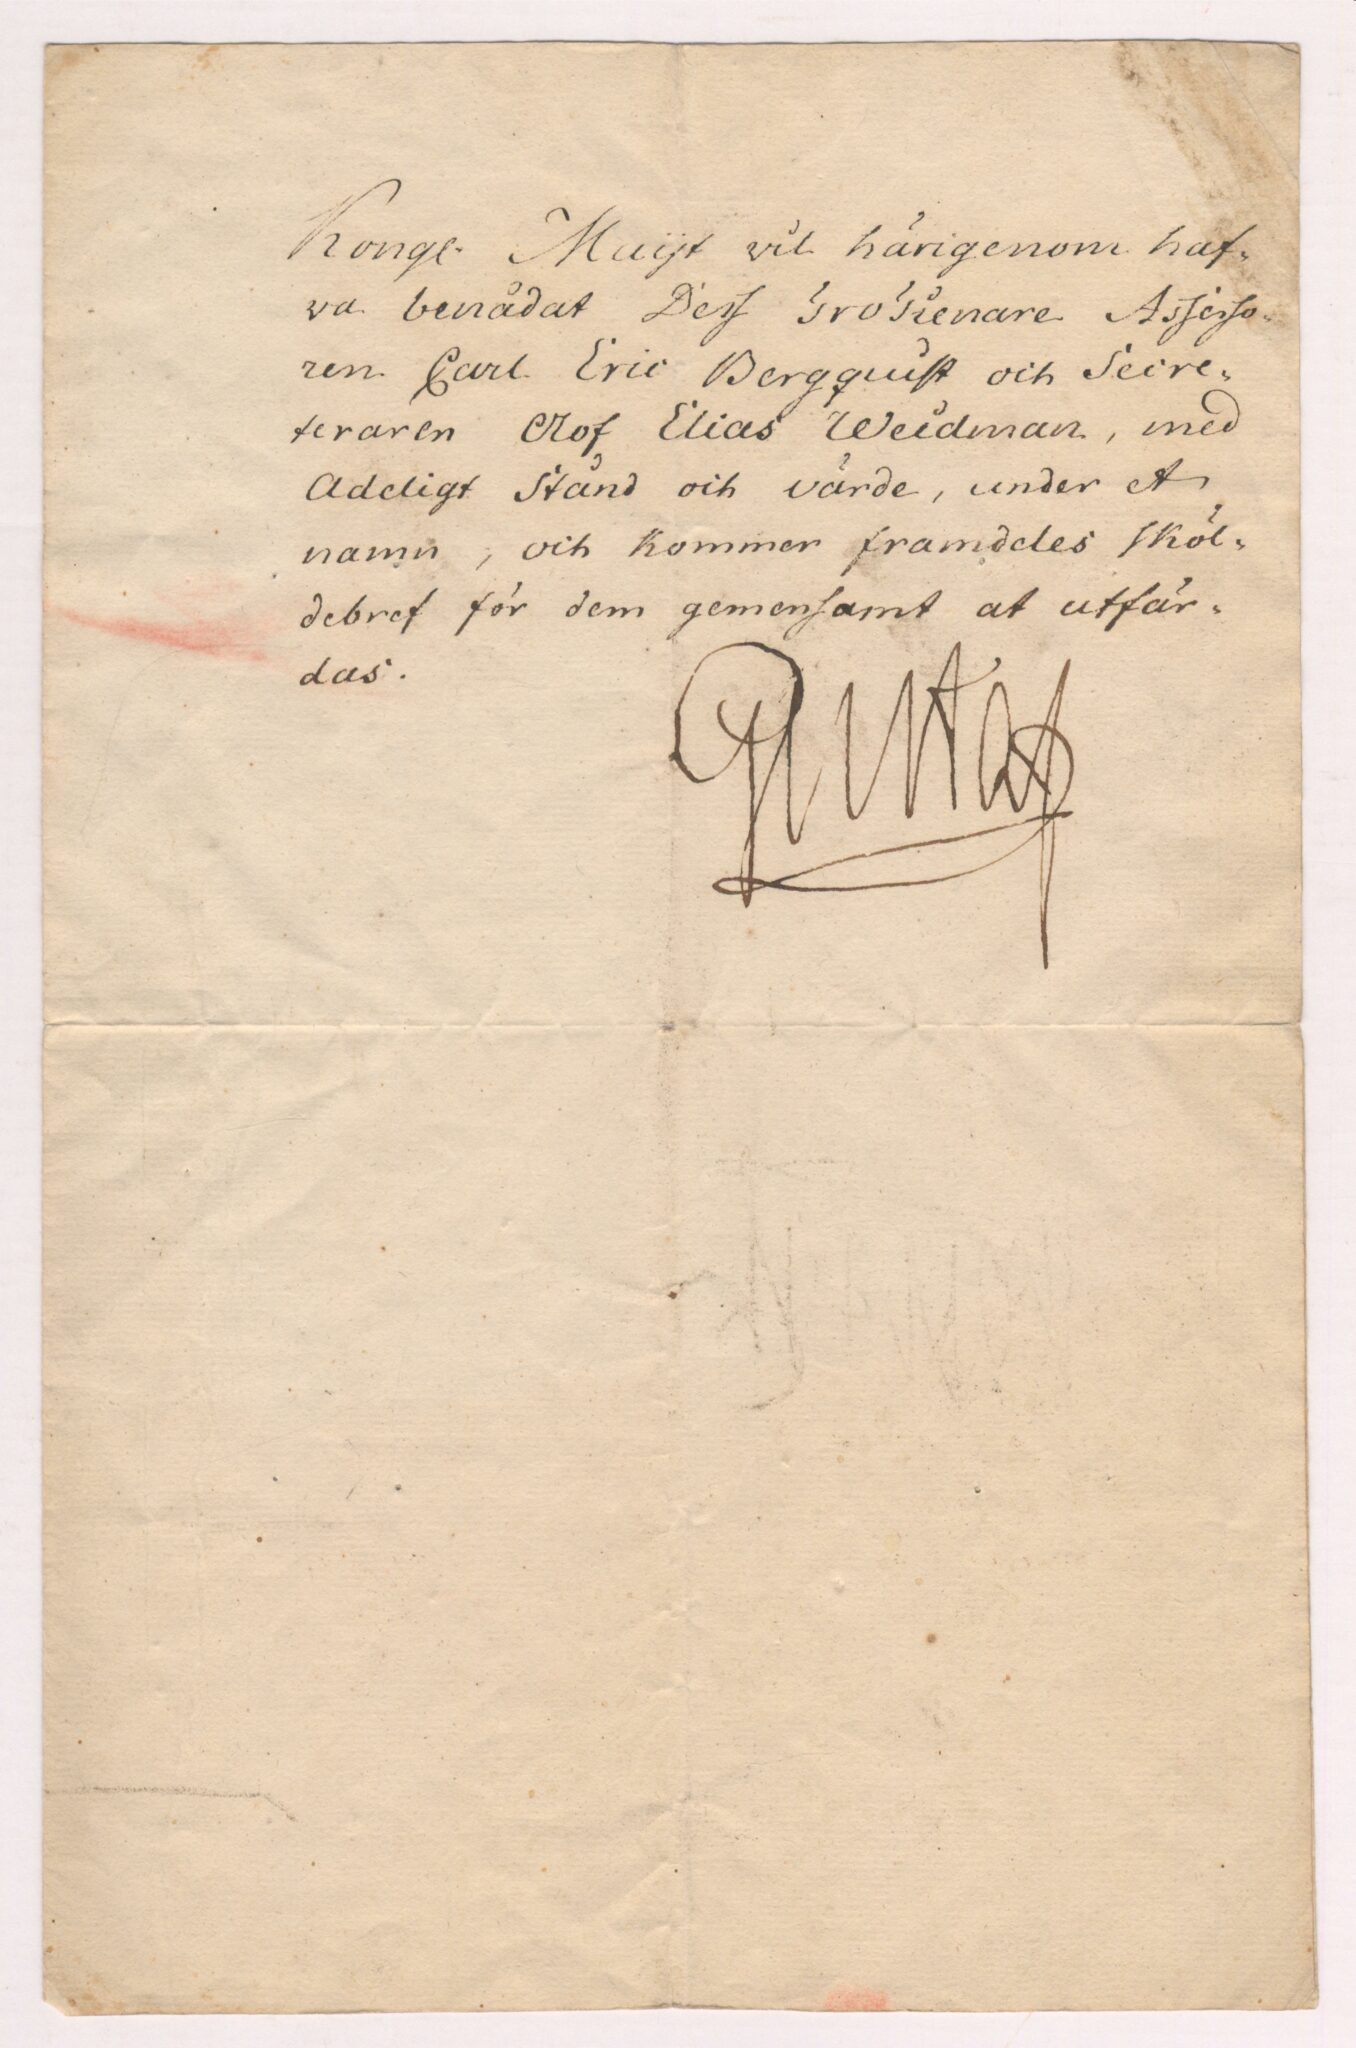 Kongl. Maijt vil härigenom haf-
va benådat Dess Trotienare Assesso-
ren Carl Eric Bergquist och Secre-
teraren Olof Elias Weidman, med
Adeligt Stånd och värde, under et
namn, och kommer framdeles sköl-
debref för dem gemensamt at utfär-
das.
Gustaf